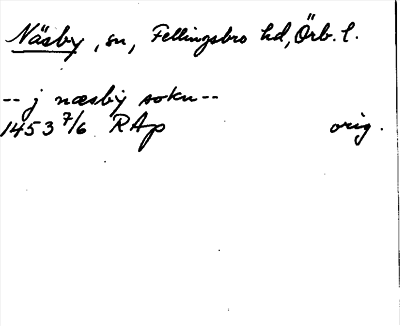 Näsby, sn, Fellingsbro hd, Örb. l.
-- j næsby sokn --
1453 7/6 RAp orig.